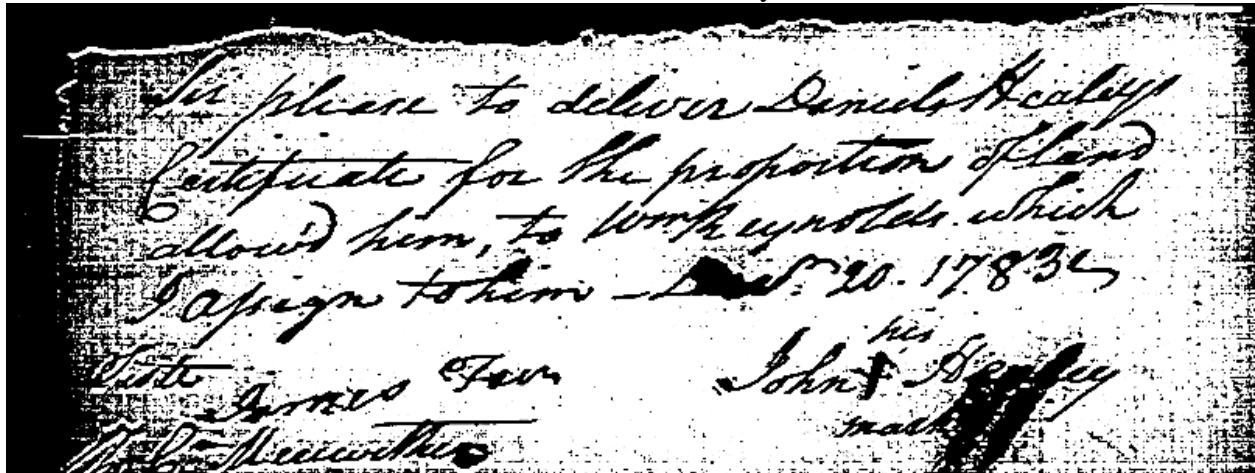 Sir please to deliver Daniel Healeys
Certificate for the proportion of land
allow'd him, to Wm Reynolds which
I assign to him - Decr. 20. 1783
his
Teste John Henley
James Fear mark
Meriwether